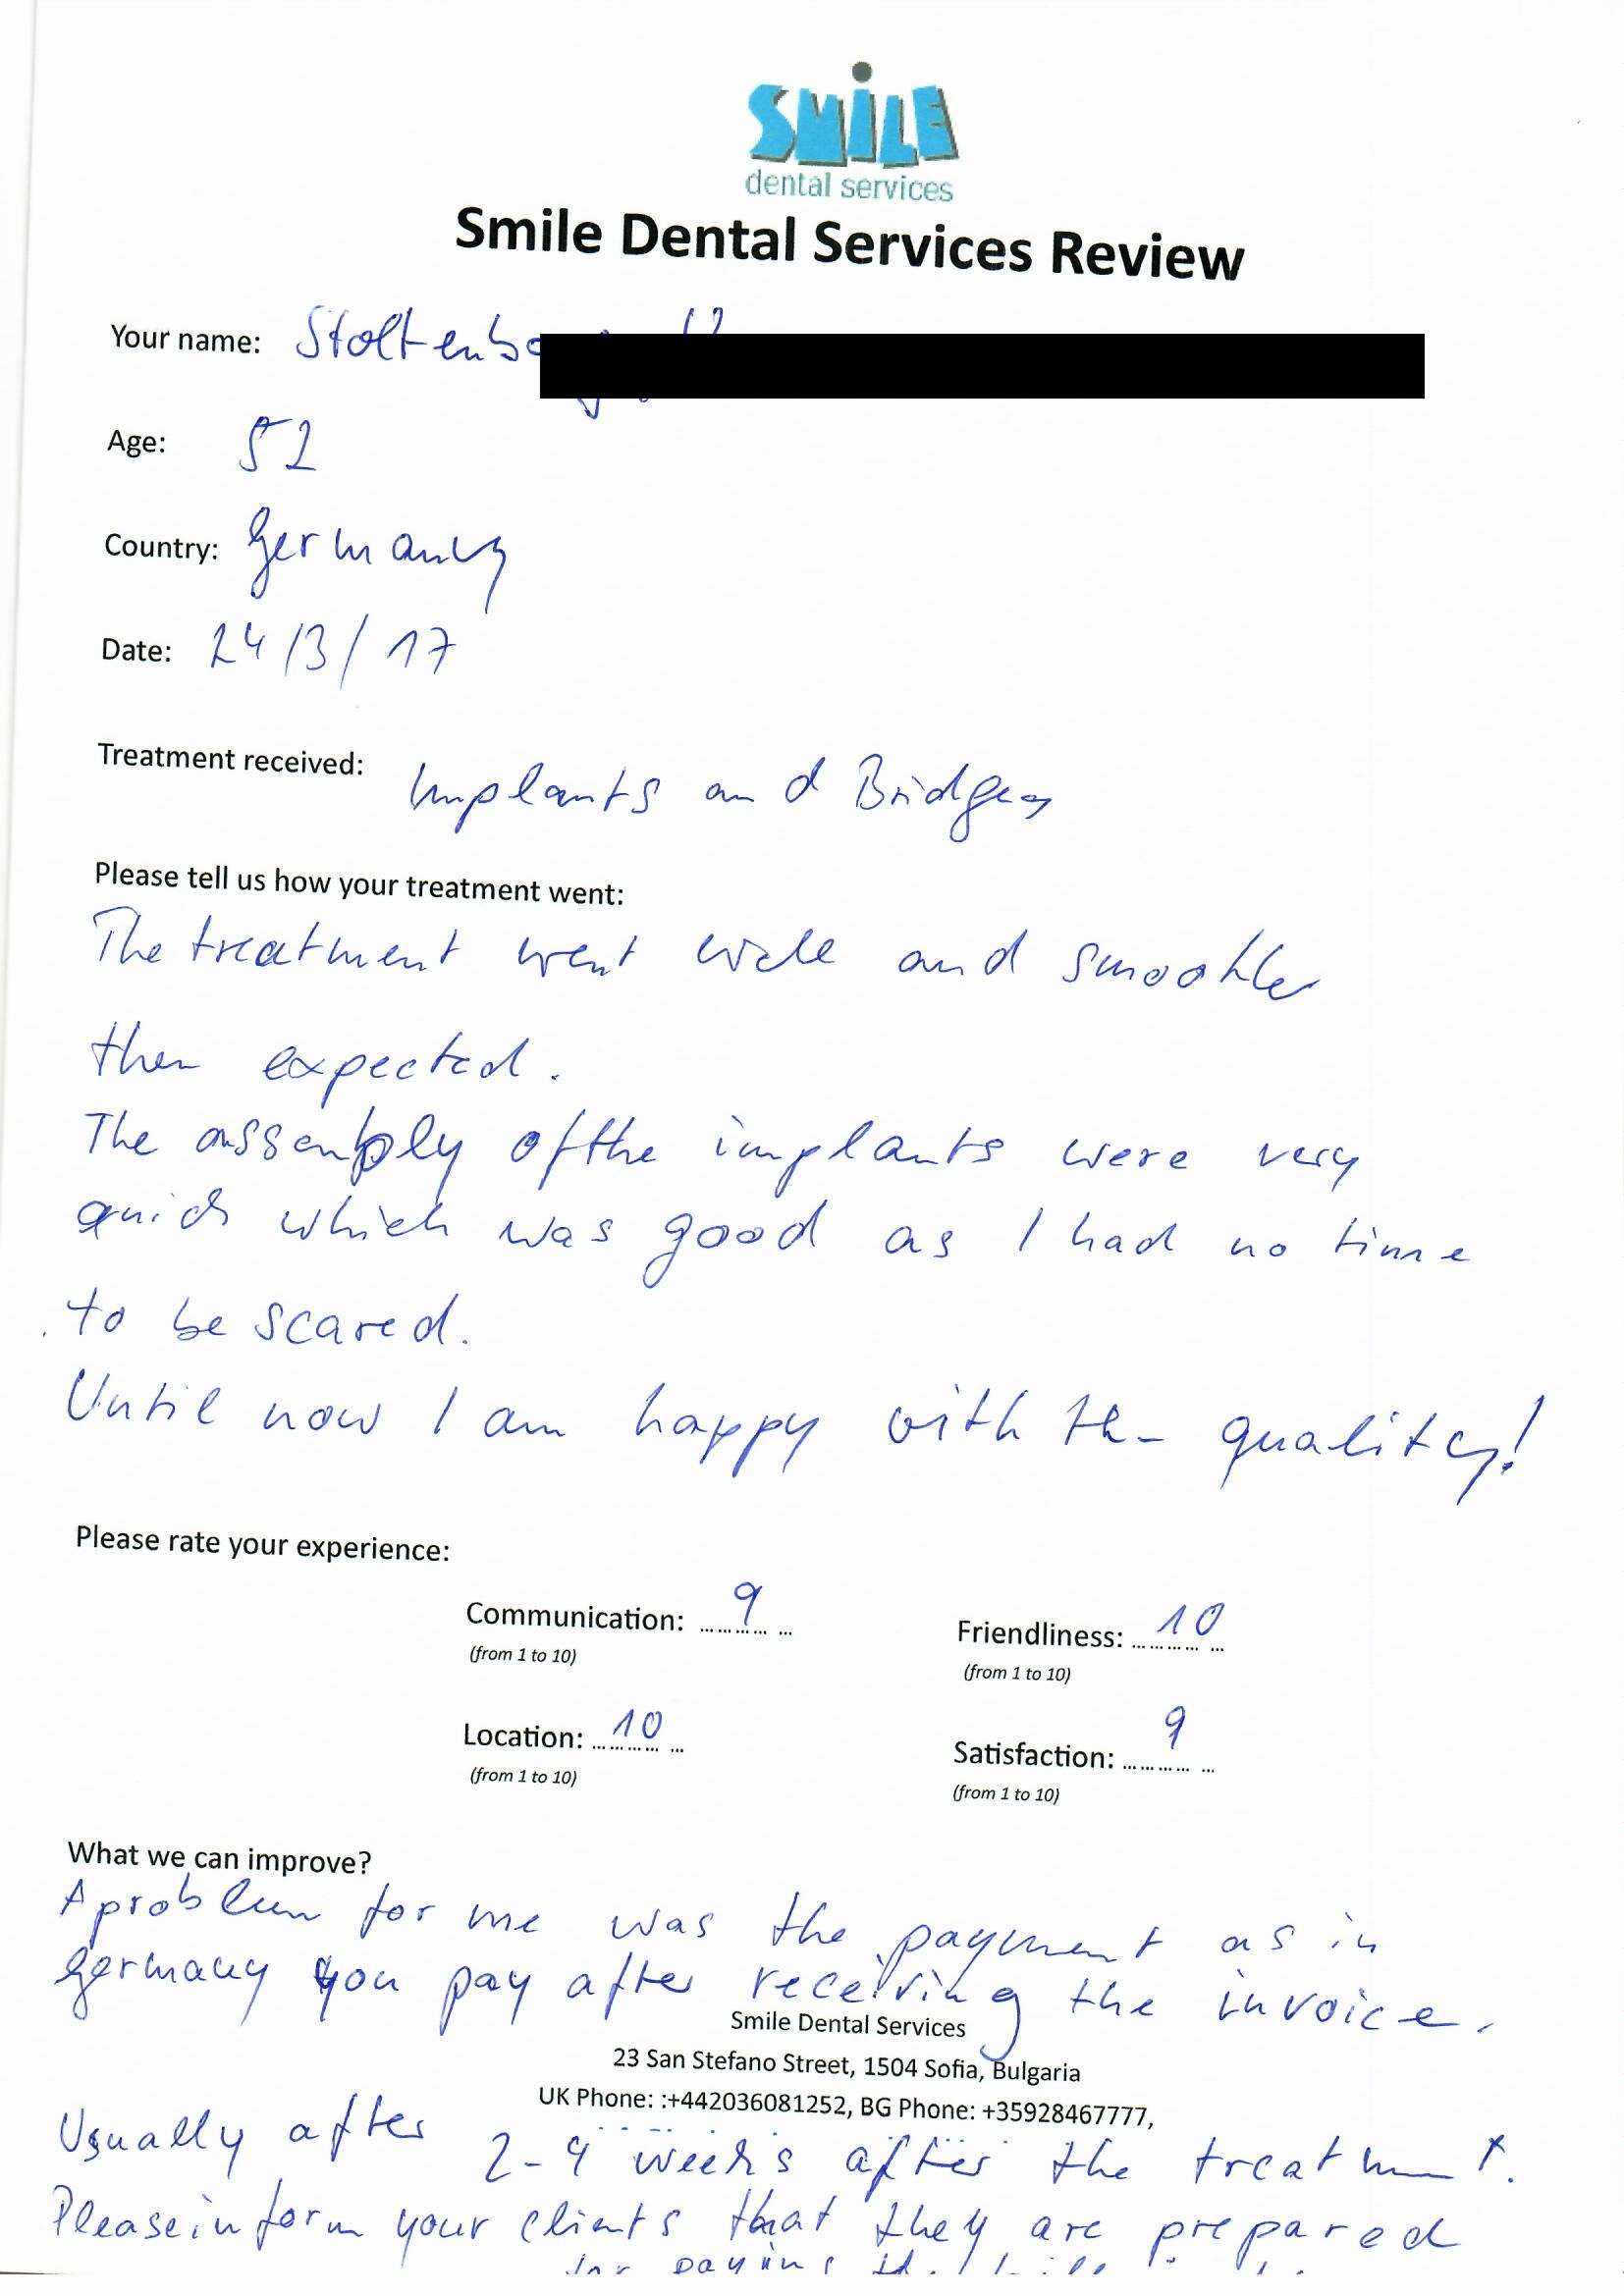 SMiLE
dental services
Smile Dental Services Review
Your name: Stoltenb
Age: 52
Country: Germany
Date: 24/3/17
Treatment received: Implants and Bridges
Please tell us how your treatment went:
The treatment went well and smoother
then expected.
The assembly of the implants were very
quick which was good as I had no time
to be scared.
Until now I am happy with the quality!
Please rate your experience:
Communication: 9 Friendliness: 10
(from 1 to 10) (from 1 to 10)
Location: 10 Satisfaction: 9
(from 1 to 10) (from 1 to 10)
What we can improve?
A problem for me was the payment as in
Germany you pay after receiving the invoice.
Smile Dental Services
23 San Stefano Street, 1504 Sofia, Bulgaria
UK Phone: :+442036081252, BG Phone: +35928467777,
Usually after 2-4 weeks after the treatment.
Please inform your clients that they are prepared
for paying